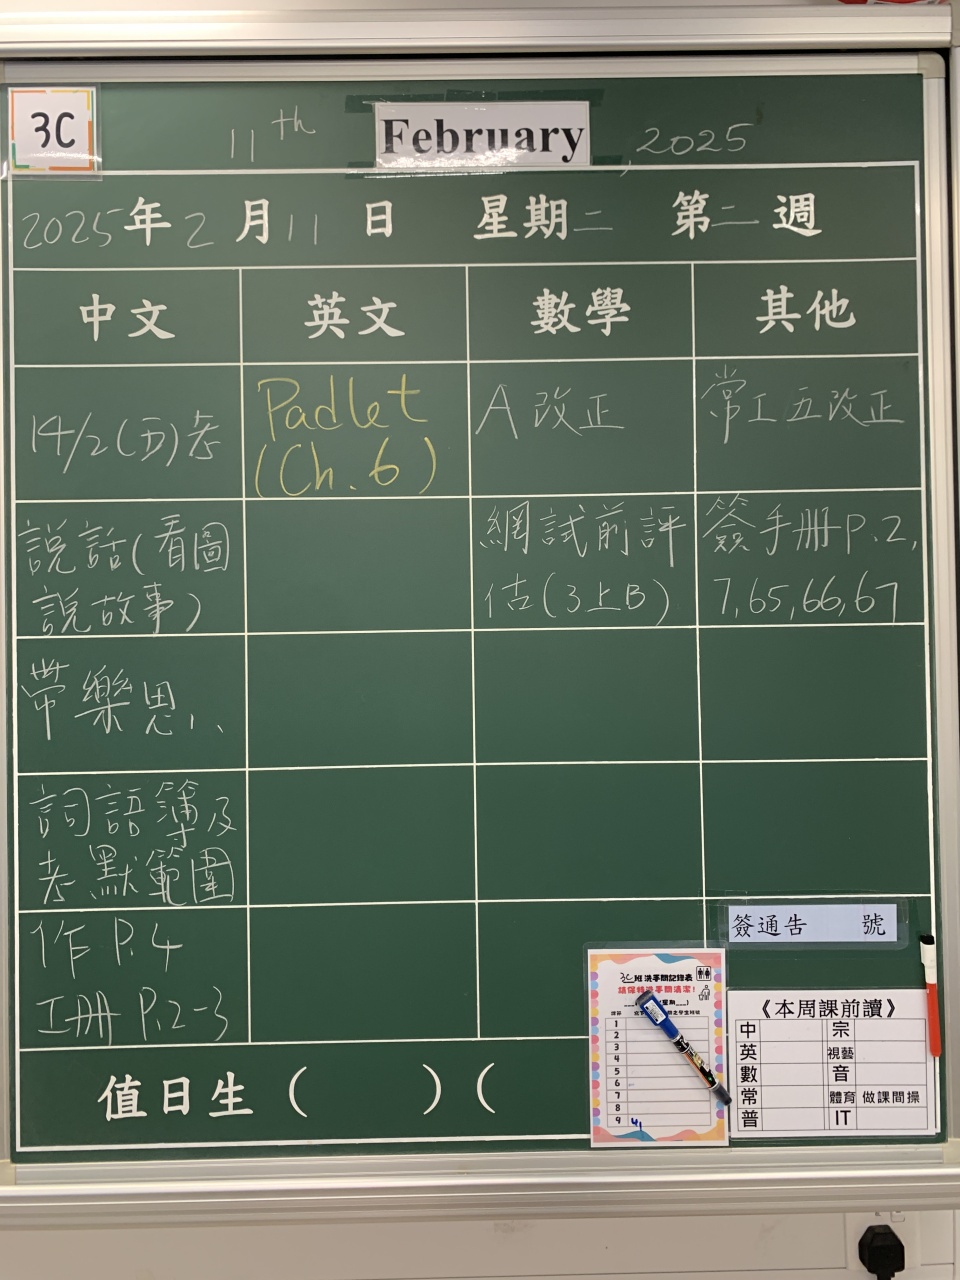 3C
11th February, 2025
2025年2月11日 星期二 第二週
中文 英文 數學 其他
14/2(五)考
説話(看圖
說故事)
帶樂思小
詞語簿及
考默範圍
作 P.4
工冊 P.2-3
Padlet
(Ch.6)
A 改正
網試前評
估(3上B)
常工五改正
簽手册 P.2,
7,65,66,67
簽通告 號
值日生( )(
3C班洗手間記錄表
請保持洗手間清潔!
1
2
3
4
5
6
7
8
9
《本周課前讀》
中 宗
英 視藝
數 音
常 體育 做課間操
普 IT